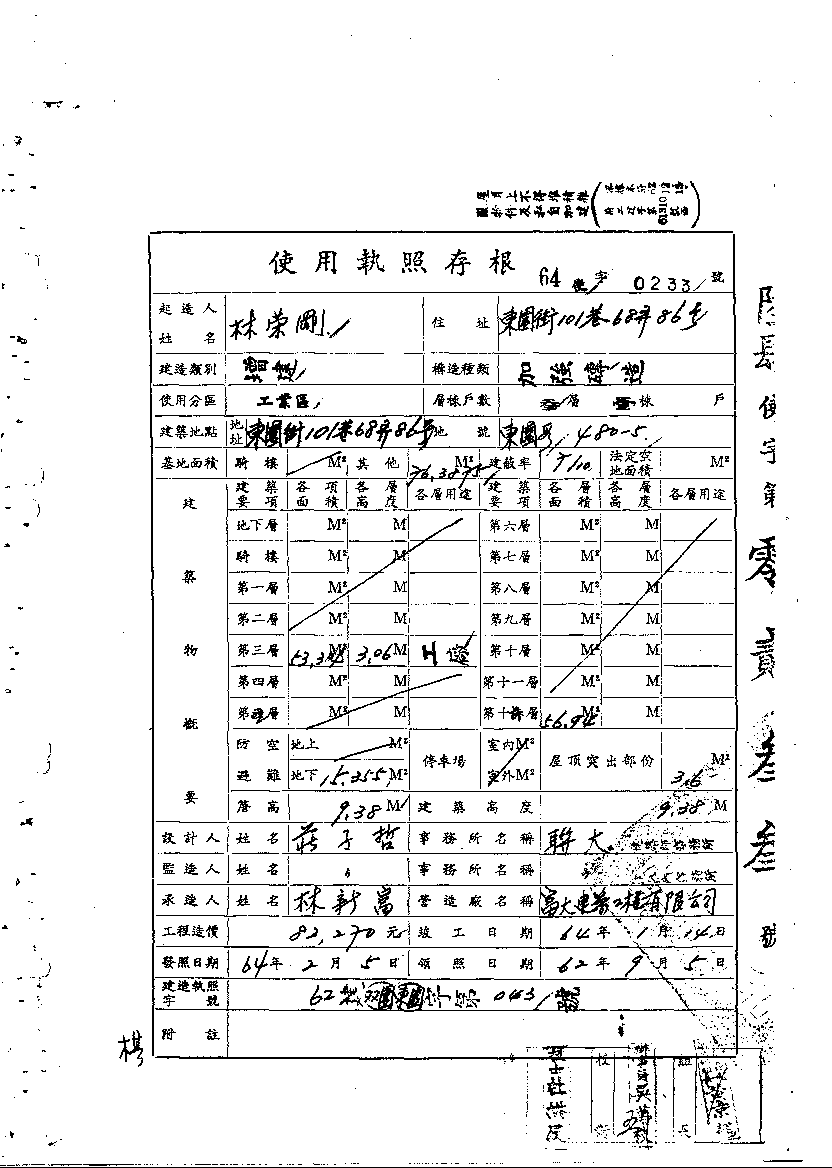 屋頂上不得堆積雜
使用執照存根
64 使字 0233 號
起造人姓名 林榮剛 住址 東園街101巷68弄86号
建造類別 增建 構造種類 加強磚造
使用分區 工業區 層棟戶數 層 棟 戶
建築地點 地址 東園街101巷68弄86号 地號 480-5
基地面積 騎樓 M² 其他 M² 建蔽率 7/10 法定空地面積 M²
建築物概要 建築要項 各項面積 各層高度 各層用途 建築要項 各項面積 各層高度 各層用途
地下層 M² M 第六層 M² M
騎樓 M² M 第七層 M² M
第一層 M² M 第八層 M² M
第二層 M² M 第九層 M² M
第三層 M² 3.06 M 第十層 M² M
第四層 M² M 第十一層 M² M
第 層 M² M 第十 層 M² M
防空避難 地上 M² 停車場 室內 M² 屋頂突出部份 M²
地下 15.255 M² 室外 M² 3.6
簷高 9.38 M 建築高度 9.38 M
設計人 姓名 莊子哲 事務所名稱 聯大
監造人 姓名 事務所名稱
承造人 姓名 林新富 營造廠名稱 工程有限公司
工程造價 82,270 元 竣工日期 64年1月14日
發照日期 64年2月5日 領照日期 62年9月5日
建造執照字號 62 字第 043 號
附註
使字第零貳叁叁號